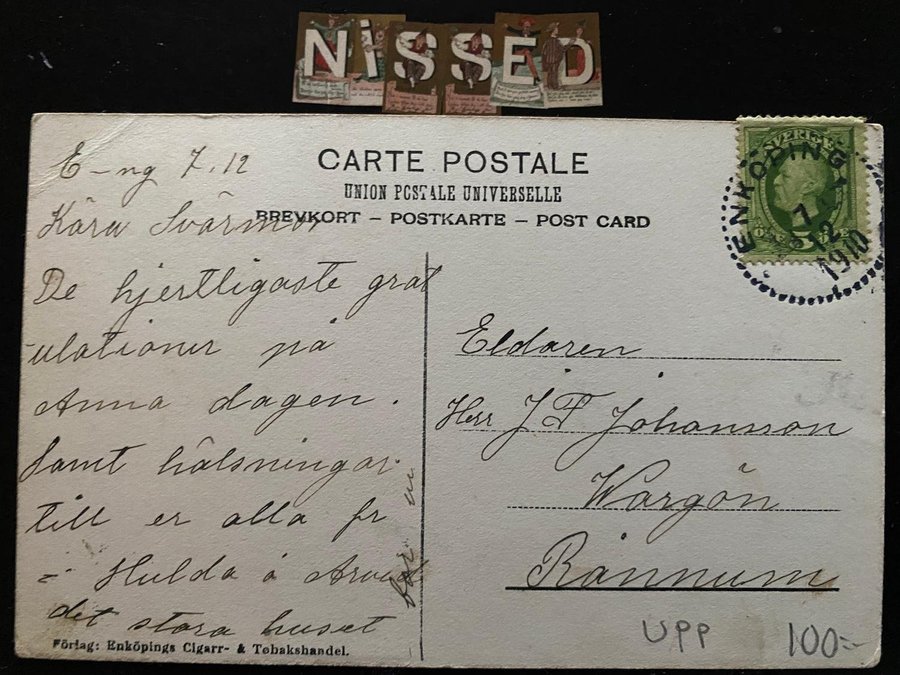 NISSED
E-ng 7.12
CARTE POSTALE
UNION POSTALE UNIVERSELLE
BREVKORT – POSTKARTE – POST CARD
SVERIGE
ENKÖPING
7
12
1910
Kära Svärmor
De hjertligaste grat
ulationer på
Anna dagen.
Samt hälsningar
till er alla fr
Hulda å Arvid
det stora huset
Eldaren
Herr J F Johansson
Wargön
Rånnum
Förlag: Enköpings Cigarr- & Tobakshandel.
UPP
100:-